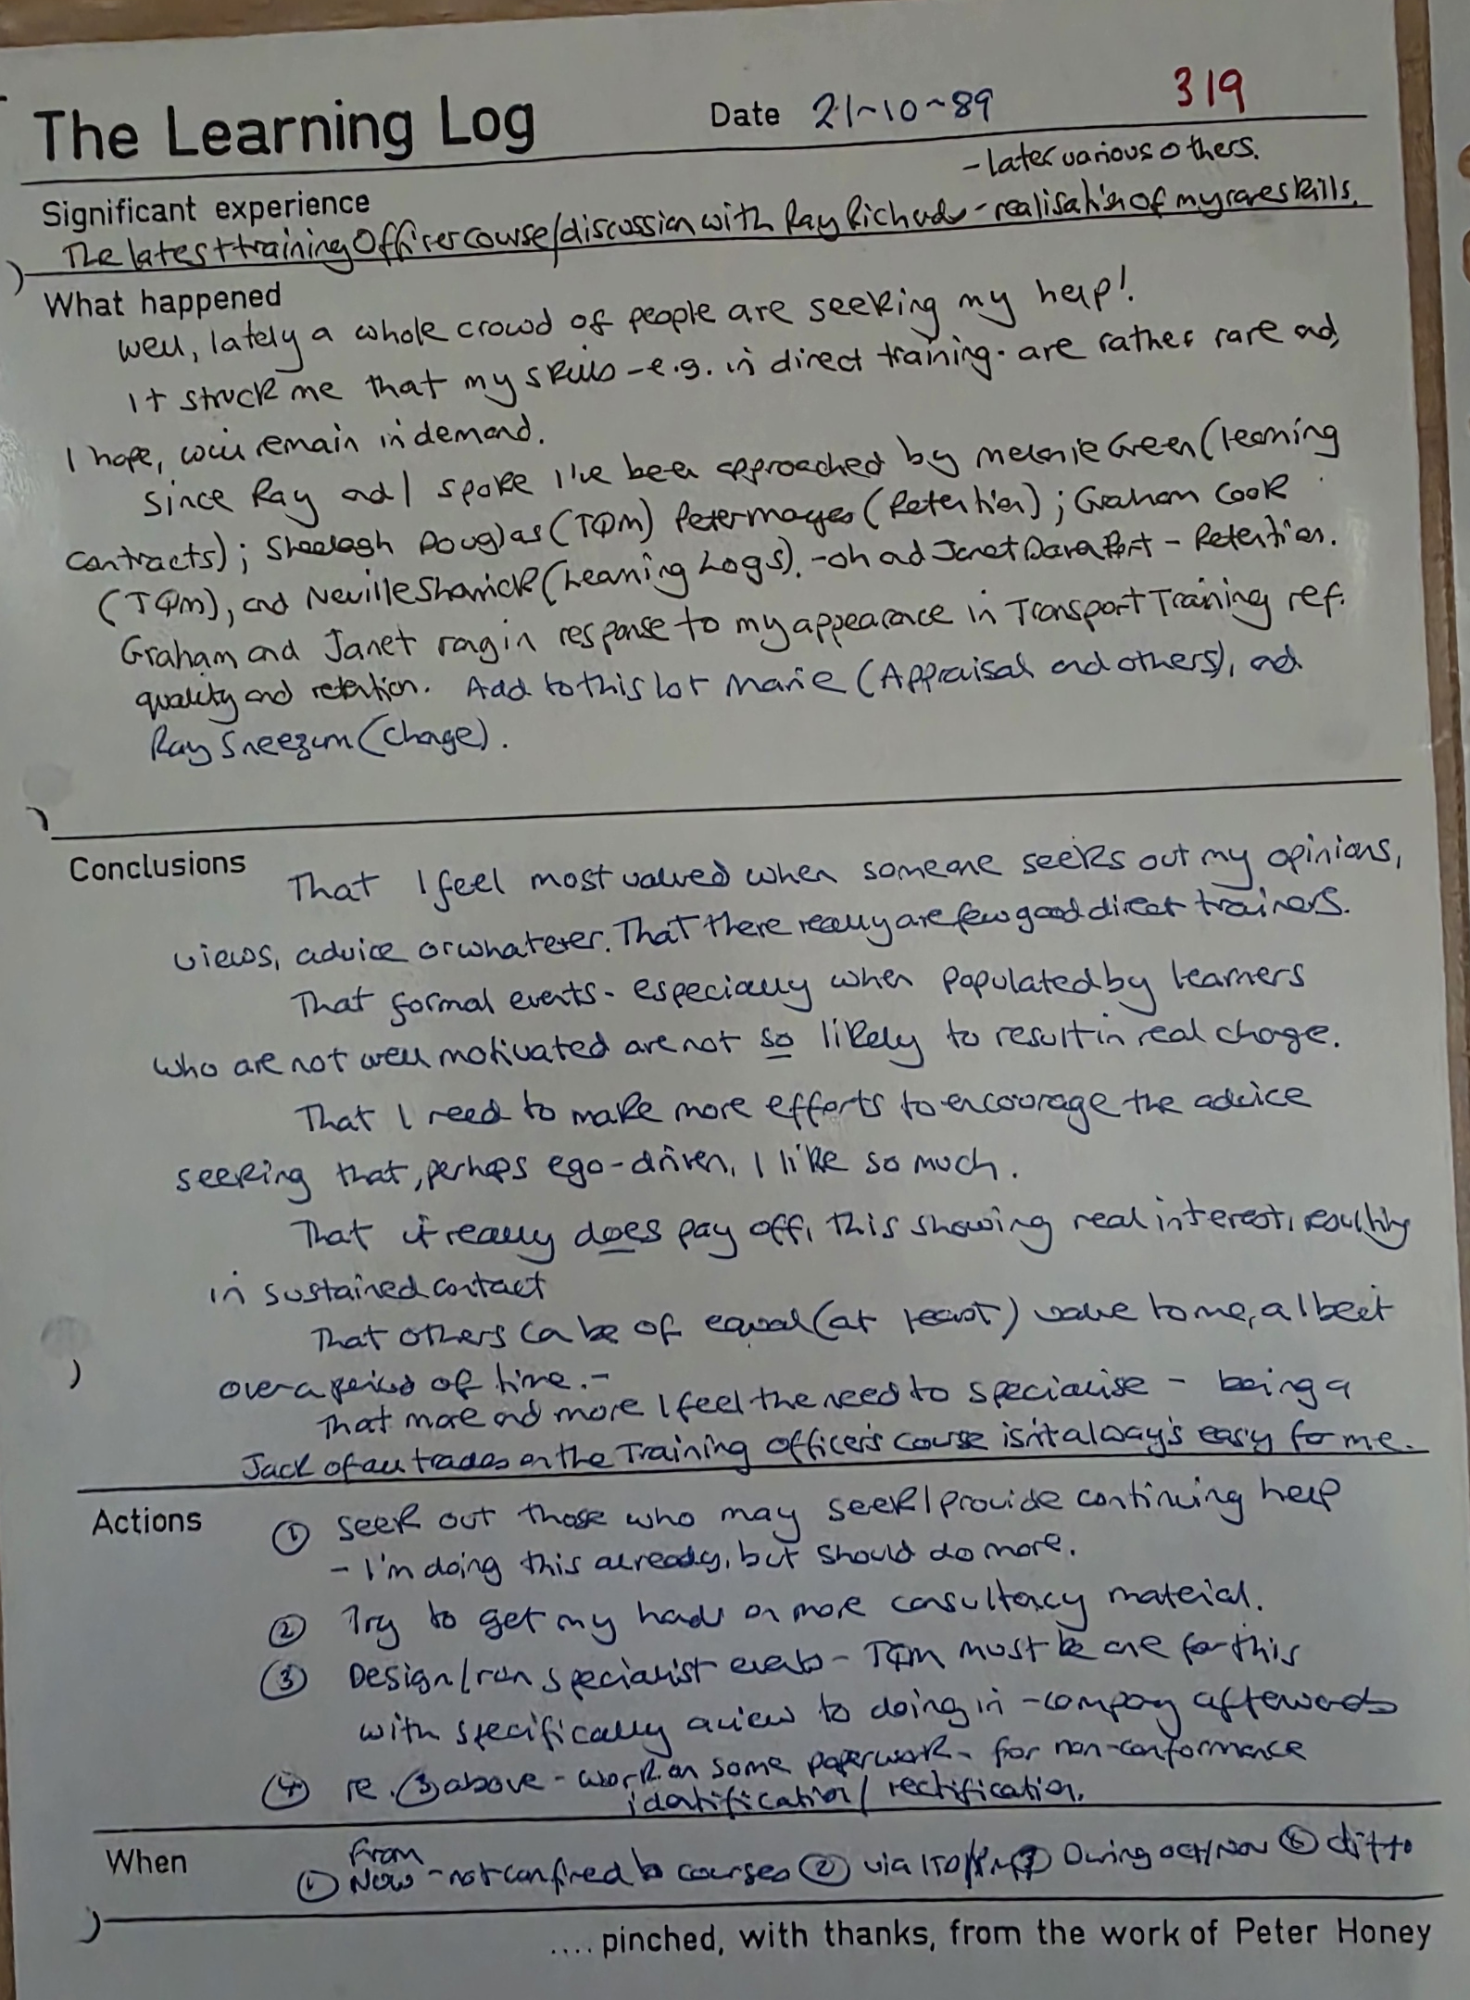 The Learning Log Date 21-10-89 319
- later various others.
Significant experience
The latest training Officer course/discussion with Ray Richards - realisation of my rare skills.
What happened
Well, lately a whole crowd of people are seeking my help!
It struck me that my skills - e.g. in direct training - are rather rare and,
I hope, will remain in demand.
Since Ray and I spoke I've been approached by Melanie Green (learning
contracts); Sheelagh Douglas (TQM) Peter Mayes (Retention); Graham Cook
(TQM), and Neville Sharrick (Learning Logs). - oh and Janet Davaport - Retention.
Graham and Janet rang in response to my appearance in Transport Training ref.
quality and retention. Add to this lot Marie (Appraisal and others), and
Ray Sneezum (change).
Conclusions
That I feel most valued when someone seeks out my opinions,
views, advice or whatever. That there really are few good direct trainers.
That formal events - especially when populated by learners
who are not well motivated are not so likely to result in real change.
That I need to make more efforts to encourage the advice
seeking that, perhaps ego-driven, I like so much.
That it really does pay off, this showing real interest, resulting
in sustained contact
That others can be of equal (at least) value to me, albeit
over a period of time. -
That more and more I feel the need to specialise - being a
Jack of all trades on the Training Officer's course isn't always easy for me.
Actions
① Seek out those who may seek/provide continuing help
- I'm doing this already, but should do more.
② Try to get my hands on more consultancy material.
③ Design/run specialist events - TQM must be one for this
with specifically a view to doing in-company afterwards
④ re. ③ above - work on some paperwork - for non-conformance
identification/rectification.
When
① From Now - not confined to courses ② via ③ During Oct/Nov ditto
.... pinched, with thanks, from the work of Peter Honey